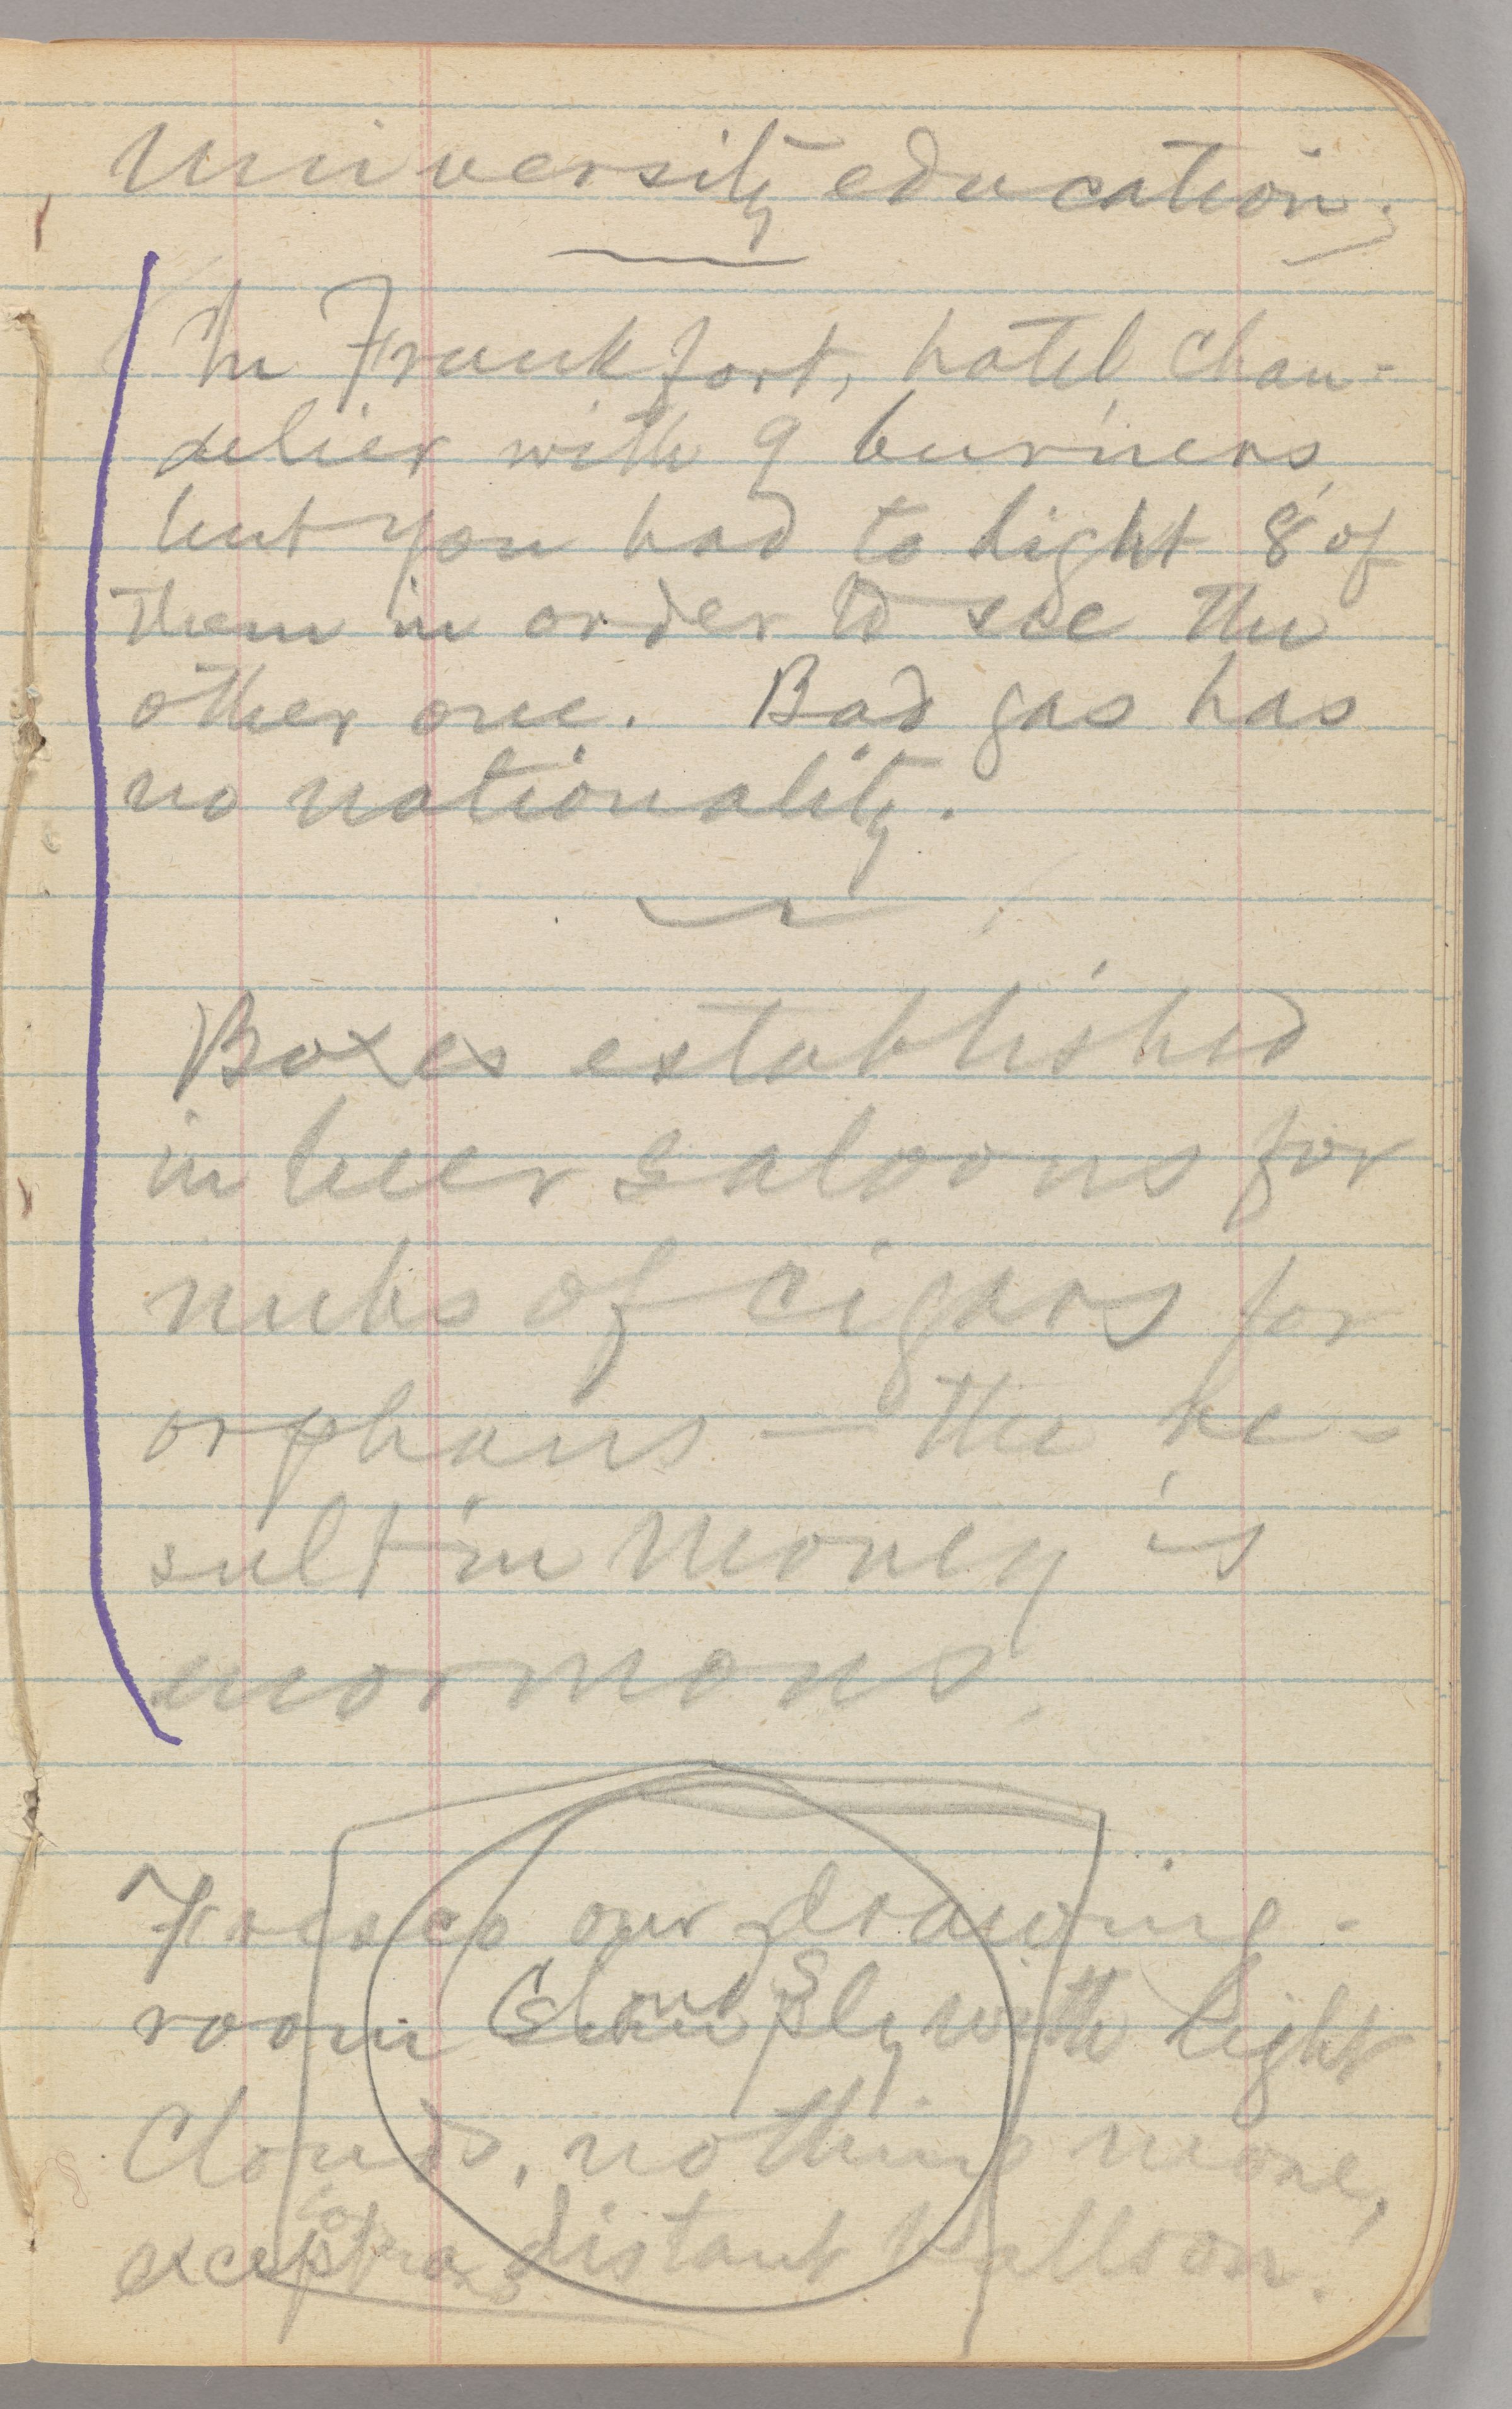 University education.
In Frankfort, hotel chan-
delier with 9 burners,
but you had to light 8 of
them in order to see the
other one. Bad gas has
no nationality.
Boxes established
in beer saloons for
nubs of cigars for
orphans — the re-
sult in money is
enormous.
Fresco our drawing-
room with light
clouds, nothing more,
except a distant balloon.